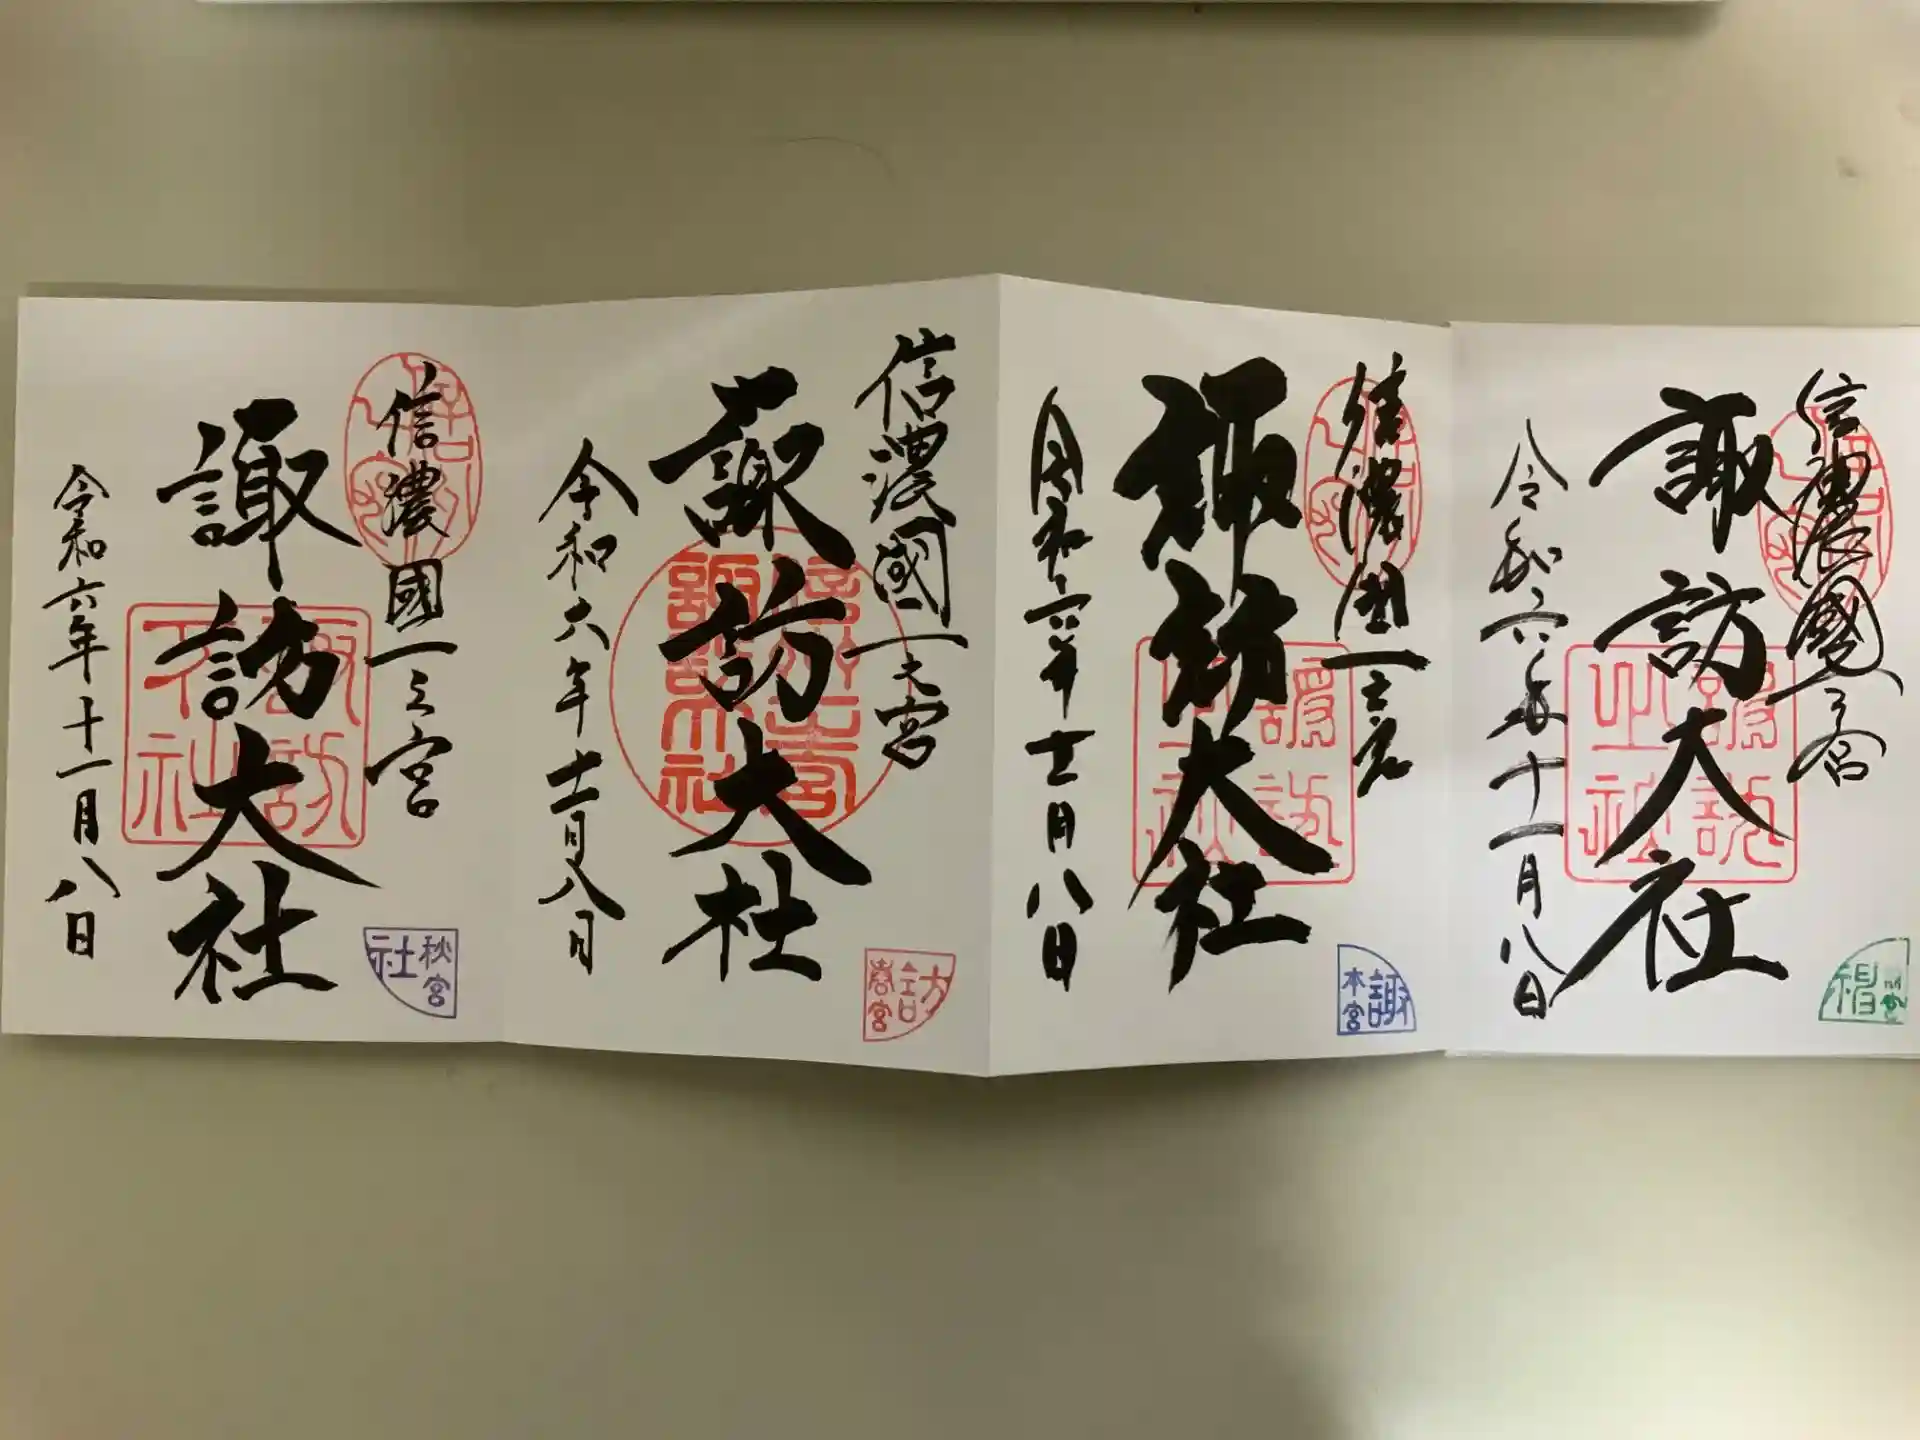 信濃國一之宮
諏訪大社
令和六年十一月八日
諏
前宮
信濃國一之宮
諏訪大社
令和六年十一月八日
諏
本宮
信濃國一之宮
諏訪大社
令和六年十一月八日
訪
春宮
信濃國一之宮
諏訪大社
令和六年十一月八日
社
秋宮